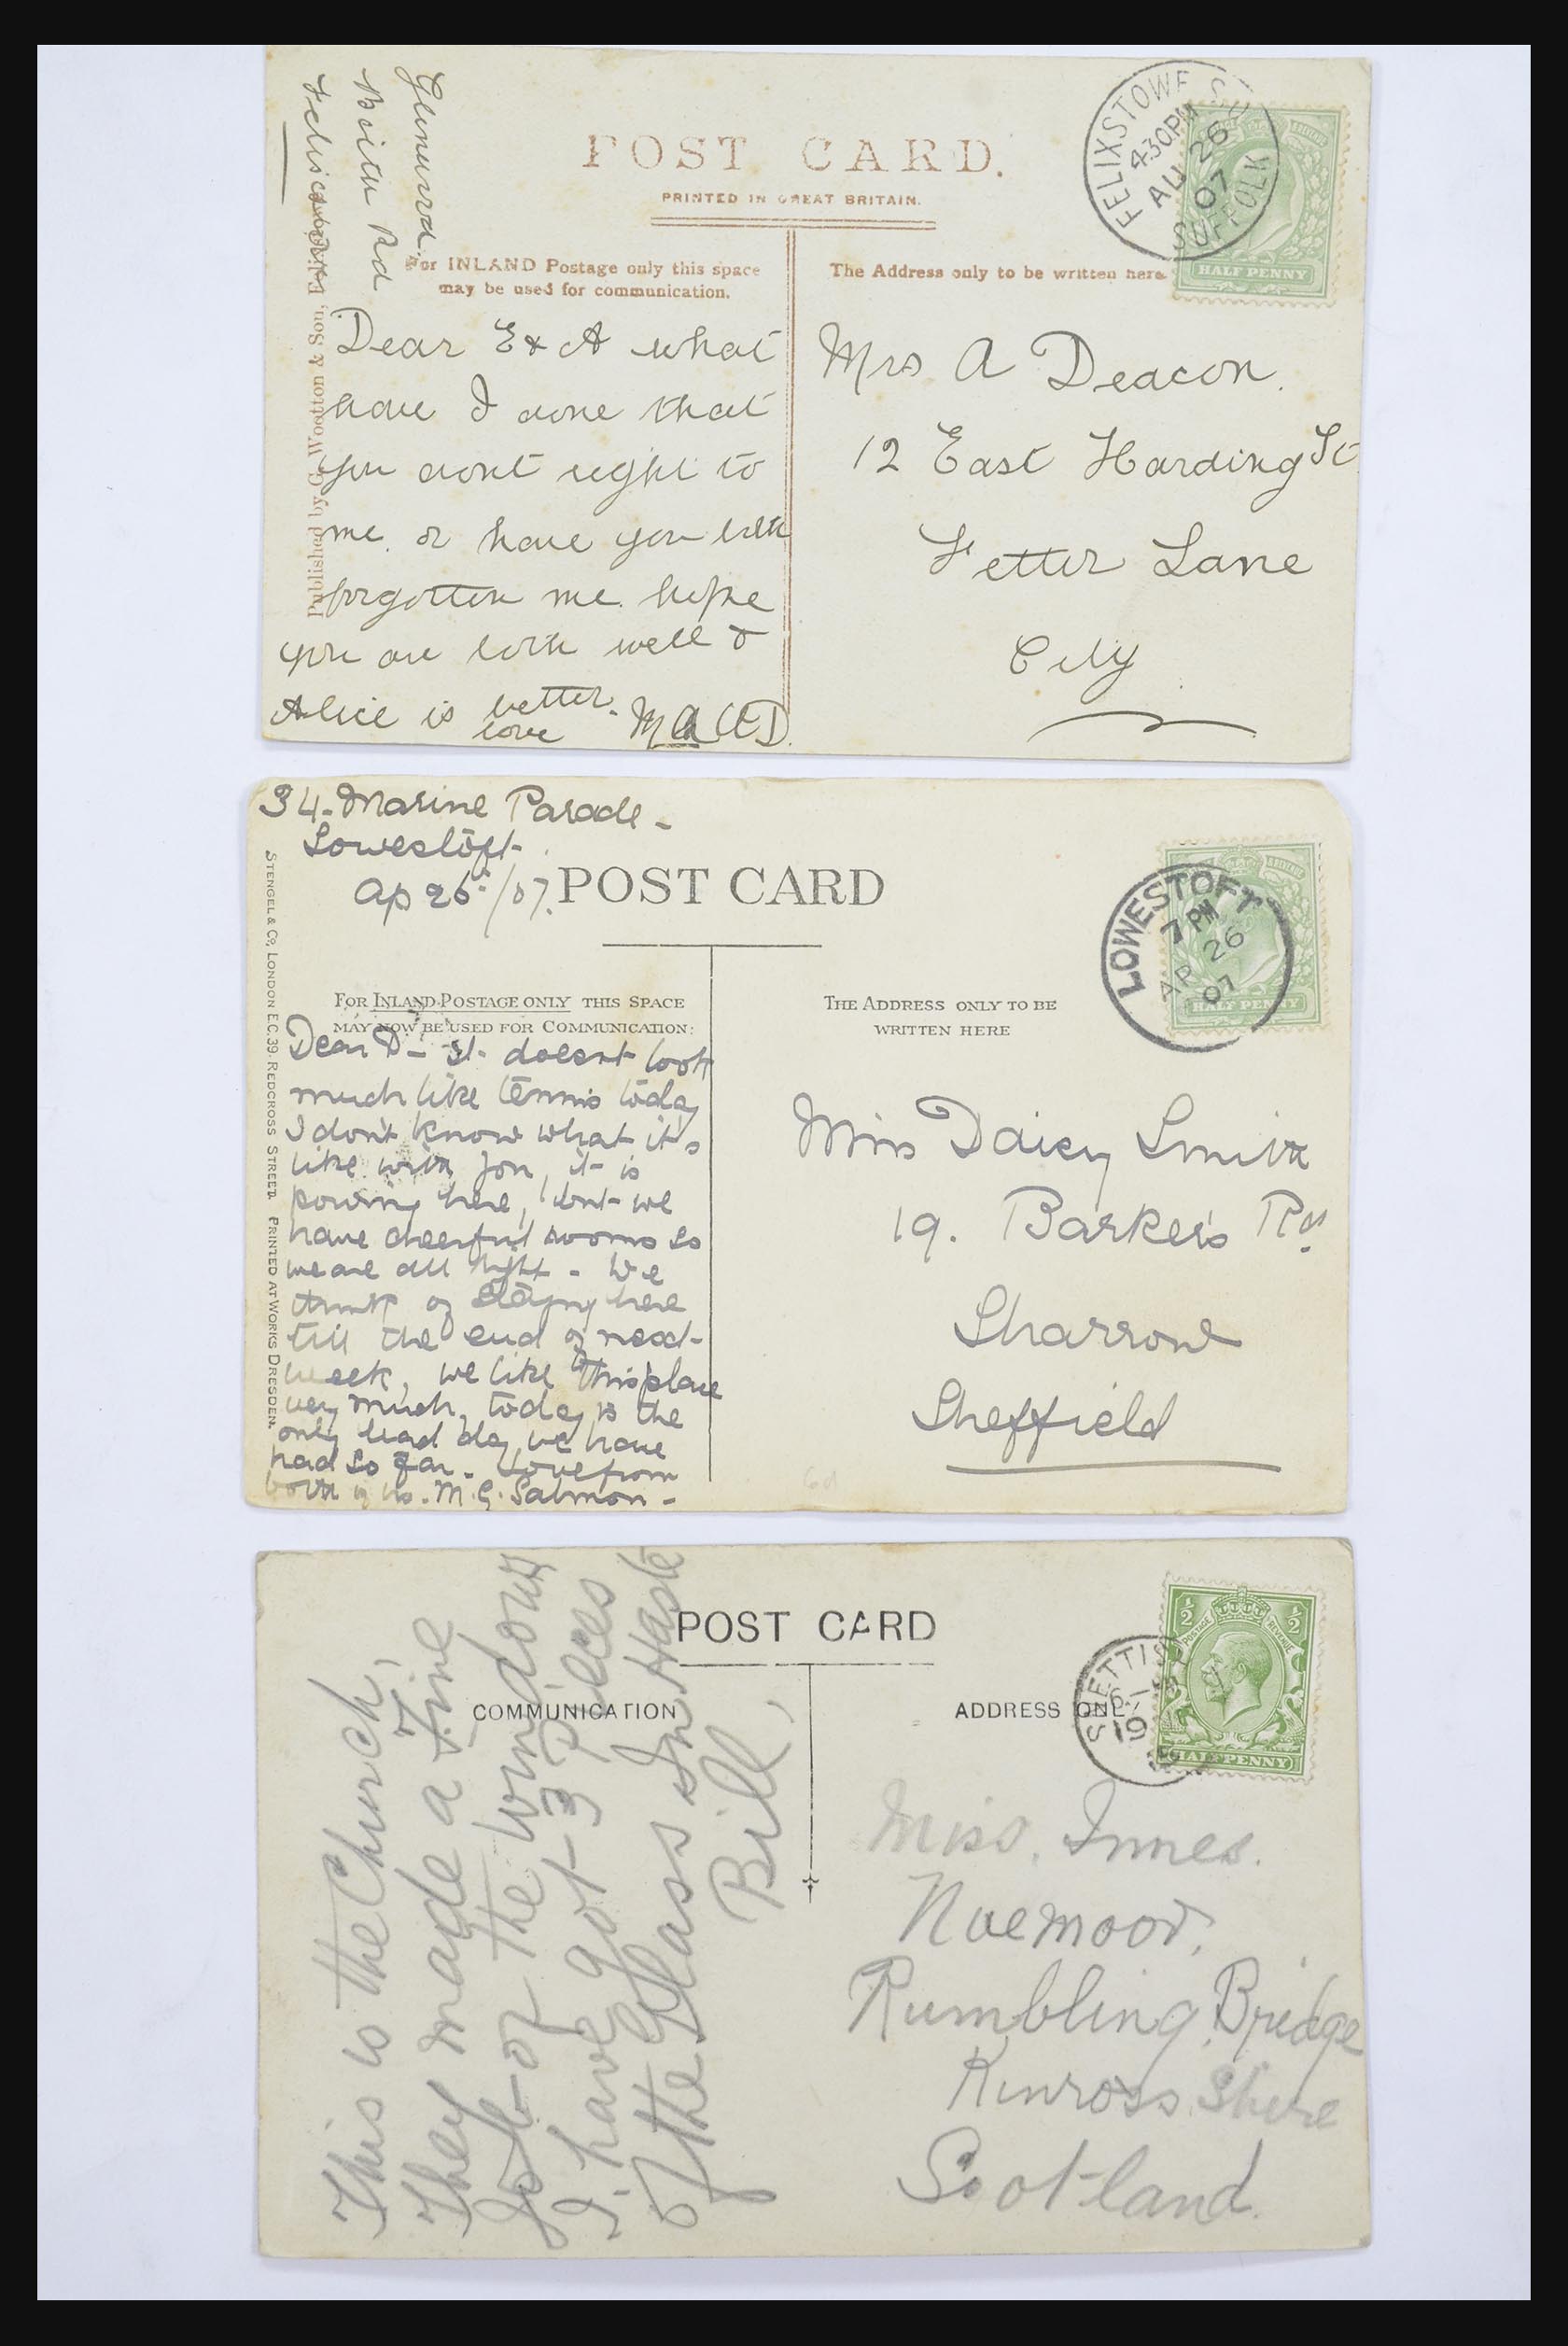 POST CARD.
PRINTED IN GREAT BRITAIN.
For INLAND Postage only this space
may be used for communication.
The Address only to be written here
Published by G. Wootton & Son,
FELIXSTOWE
4.30PM
AU 26
07
SUFFOLK
HALF PENNY
Rd
Felixstowe
Dear E & A what
have I done that
you dont right to
me. or have you both
forgotten me. hope
you are both well &
Alice is better.
love
Mrs A Deacon.
12 East Harding St
Fetter Lane
City
34. Marine Parade -
Lowestoft.
Ap 26th/07.
POST CARD
STENGEL & Co., LONDON E.C. 39. REDCROSS STREET. PRINTED AT WORKS DRESDEN.
FOR INLAND POSTAGE ONLY THIS SPACE
MAY NOW BE USED FOR COMMUNICATION:
THE ADDRESS ONLY TO BE
WRITTEN HERE
LOWESTOFT
7 PM
AP 26
07
HALF PENNY
Dear D - It doesnt look
much like tennis today
I don't know what it's
like with you, it is
pouring here, but we
have cheerful rooms so
we are all right - We
think of staying here
till the end of next
week, we like this place
very much, today is the
only bad day we have
had so far - Love from
both of us. M.G. Salmon -
Miss Daisy Smith
19. Barkers Rd
Sharrow
Sheffield
POST CARD
COMMUNICATION
ADDRESS ONLY
½ ½
POSTAGE REVENUE
HALFPENNY
This is the Church,
They made a Fine
Job of the windows
I have got 3 Pieces
of the Glass In Haste
Bill,
Miss. Innes.
Rumbling Bridge
Kinross Shire
Scotland.